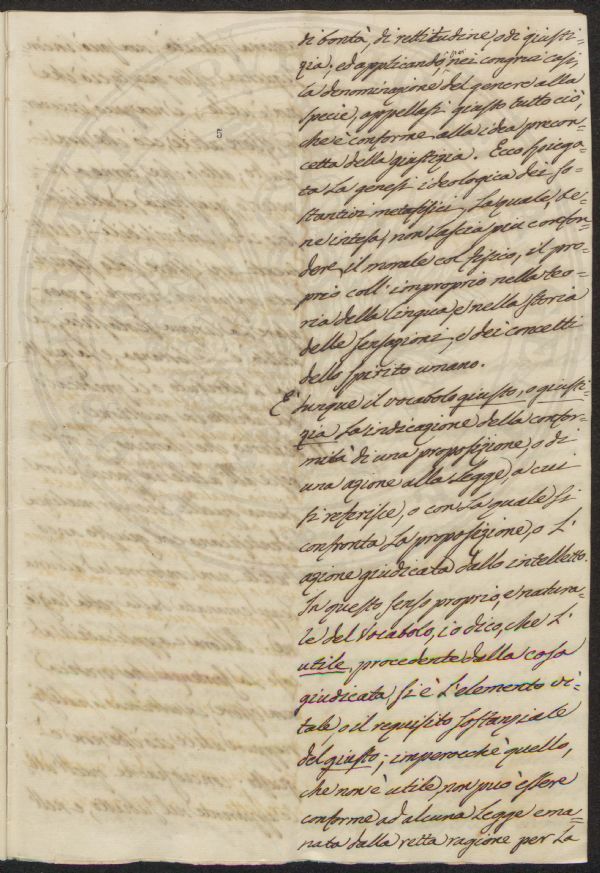 5
di bontà, di rettitudine, o di giusti=
zia; ed applicando nei congrui casi
la denominazione del genere alla
specie, appellasi giusto tutto ciò,
che è conforme alla idea precon=
cetta della giustizia. Ecco spiega=
ta la genesi ideologica dei so=
stantivi metafisici, la quale, be=
ne intesa, non lascia più confon=
dere il morale col fisico, il pro=
prio coll' improprio nella teo=
ria della lingua, e nella storia
delle sensazioni, e dei concetti
dello spirito umano.
È dunque il vocabolo giusto, o giusti=
zia la indicazione della confor=
mità di una proposizione, o di
una azione alla legge, a cui
si riferisce, o con la quale si
confronta la proposizione, o l'
azione giudicata dallo intelletto.
In questo senso proprio, e natura=
le del vocabolo, io dico, che l'
utile, procedente dalla cosa
giudicata si è l'elemento vi=
tale o il requisito sostanziale
del giusto; imperocchè quello,
che non è utile non può essere
conforme ad alcuna legge ema=
nata dalla retta ragione per la